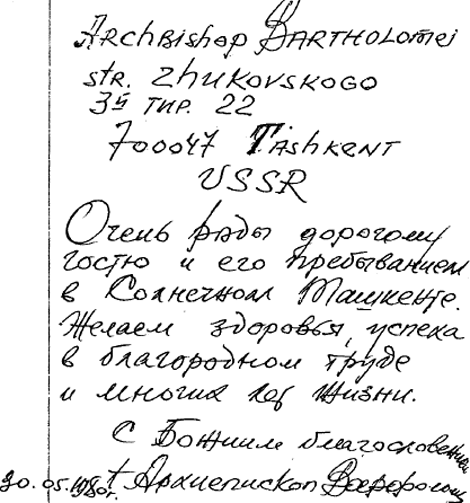 Archbishop Bartholomei
str. Zhukovskogo
3й тир. 22
700047 Tashkent
USSR
Очень рады дорогому
гостю и его пребыванием
в Солнечном Ташкенте.
Желаем здоровья, успеха
в благородном труде
и многих лет жизни.
С Божиим благословением
20.05.1980г. † Архиепископ Варфоломей